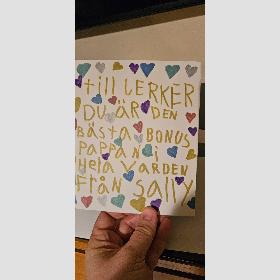 till LERKER
DU ÄR DEN
BÄSTA BONUS
PAPPAN i
HeLA VÄRDEN
FRÅN SAlly